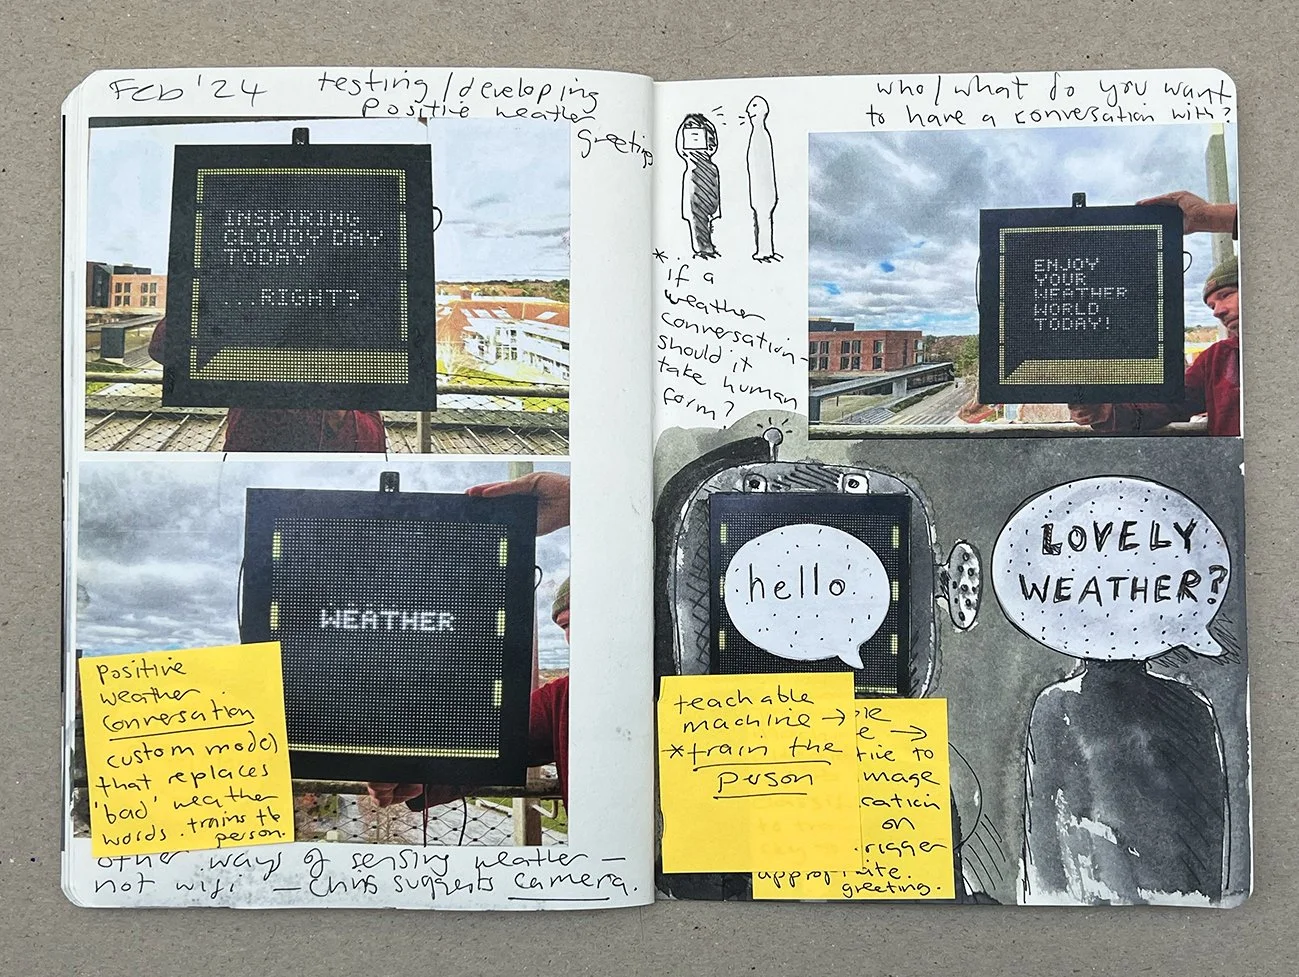 Feb '24
testing/developing
positive weather
greetings
INSPIRING
CLOUDY DAY
TODAY
...RIGHT?
WEATHER
positive
weather
conversation
custom model
that replaces
'bad' weather
words. trains the
person.
other ways of sensing weather —
not wifi — Chris suggests camera.
who/what do you want
to have a conversation with?
* if a
weather
conversation -
should it
take human
form?
ENJOY
YOUR
WEATHER
WORLD
TODAY!
hello.
LOVELY
WEATHER?
teachable
machine →
*train the
person
→
to
on
appropriate.
greeting.